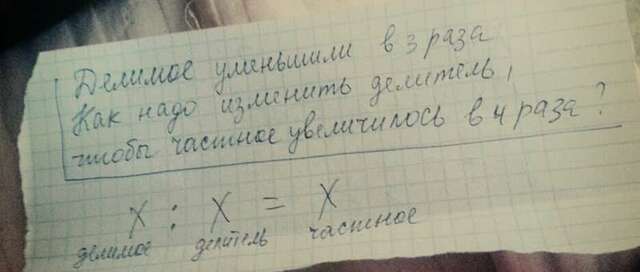 Делимое уменьшили в 3 раза
Как надо изменить делитель,
чтобы частное увеличилось в 4 раза?
X : X = X
делимое делитель частное